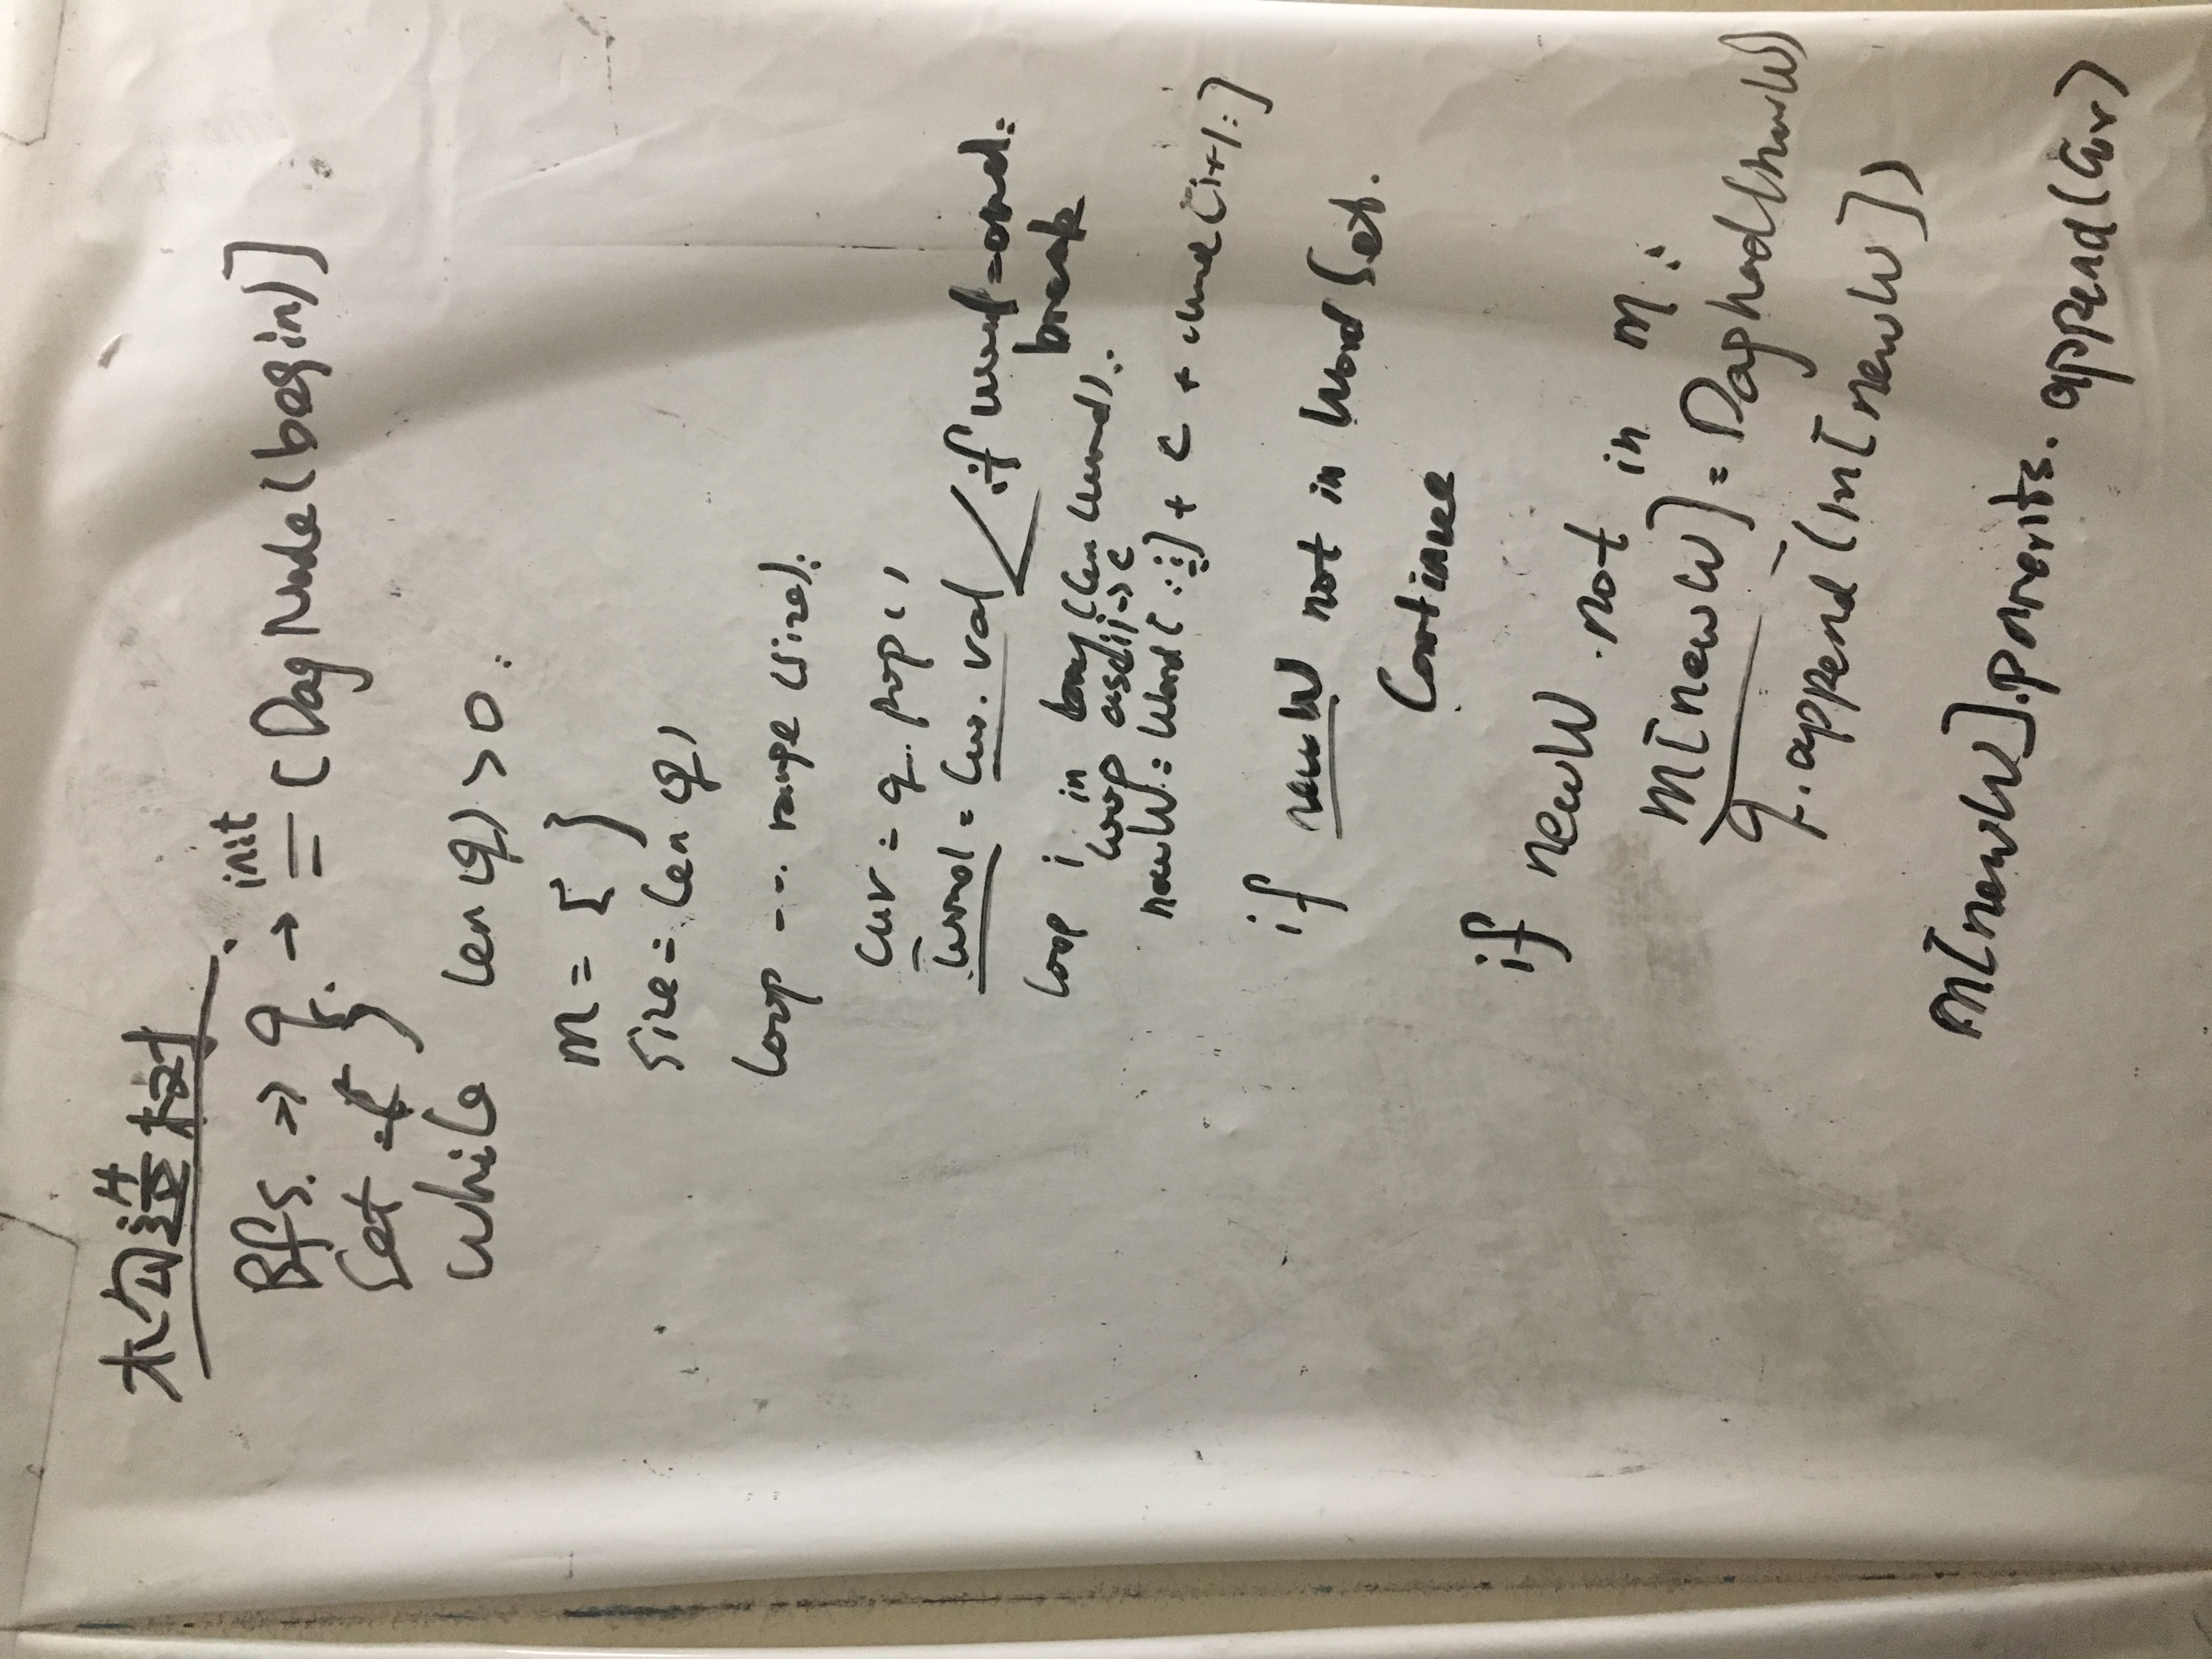 构造树
init
Bfs. => q. → = [DagNode(begin)]
Set = { }
while len(q) > 0:
m = { }
size = len(q)
loop --- range(size):
cur = q.pop()
word = cur.val / if word = end:
break
loop i in (len(word)):
loop ascii -> c
newW = Word[:i] + c + word[i+1:]
if newW not in WordSet.
Continue
if newW not in m:
m[newW] = DagNod(newW)
q.append(m[newW])
m[newW].parents.append(cur)